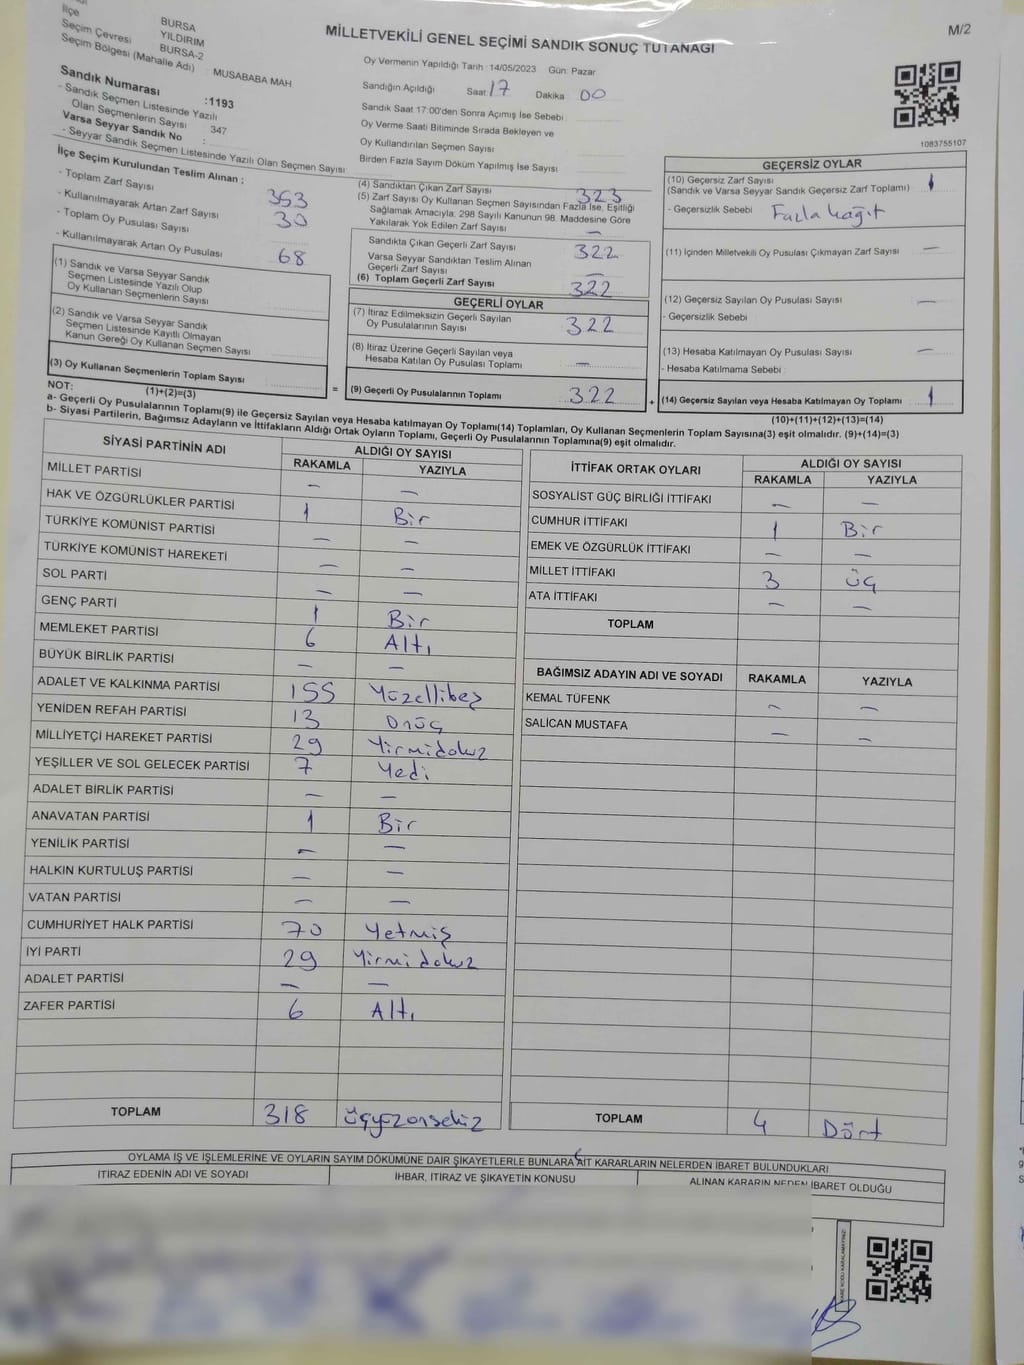 MİLLETVEKİLİ GENEL SEÇİMİ SANDIK SONUÇ TUTANAĞI
M/2
İlçe
Seçim Çevresi
Seçim Bölgesi (Mahalle Adı)
BURSA
YILDIRIM
BURSA-2
MUSABABA MAH
Sandık Numarası :1193
- Sandık Seçmen Listesinde Yazılı
Olan Seçmenlerin Sayısı 347
Varsa Seyyar Sandık No :
- Seyyar Sandık Seçmen Listesinde Yazılı Olan Seçmen Sayısı
İlçe Seçim Kurulundan Teslim Alınan :
- Toplam Zarf Sayısı 353
- Kullanılmayarak Artan Zarf Sayısı 30
- Toplam Oy Pusulası Sayısı
- Kullanılmayarak Artan Oy Pusulası 68
(1) Sandık ve Varsa Seyyar Sandık
Seçmen Listesinde Yazılı Olup
Oy Kullanan Seçmenlerin Sayısı
(2) Sandık ve Varsa Seyyar Sandık
Seçmen Listesinde Kayıtlı Olmayan
Kanun Gereği Oy Kullanan Seçmen Sayısı
(3) Oy Kullanan Seçmenlerin Toplam Sayısı
(1)+(2)=(3)
Oy Vermenin Yapıldığı Tarih :14/05/2023 Gün: Pazar
Sandığın Açıldığı Saat 17 Dakika 00
Sandık Saat 17:00'den Sonra Açımış İse Sebebi
Oy Verme Saati Bitiminde Sırada Bekleyen ve
Oy Kullandırılan Seçmen Sayısı
Birden Fazla Sayım Döküm Yapılmış İse Sayısı
(4) Sandıktan Çıkan Zarf Sayısı 323
(5) Zarf Sayısı Oy Kullanan Seçmen Sayısından Fazla İse, Eşitliği
Sağlamak Amacıyla, 298 Sayılı Kanunun 98. Maddesine Göre
Yakılarak Yok Edilen Zarf Sayısı —
Sandıkta Çıkan Geçerli Zarf Sayısı 322
Varsa Seyyar Sandıktan Teslim Alınan
Geçerli Zarf Sayısı —
(6) Toplam Geçerli Zarf Sayısı 322
GEÇERLİ OYLAR
(7) İtiraz Edilmeksizin Geçerli Sayılan
Oy Pusulalarının Sayısı 322
(8) İtiraz Üzerine Geçerli Sayılan veya
Hesaba Katılan Oy Pusulası Toplamı —
= (9) Geçerli Oy Pusulalarının Toplamı 322
1083755107
GEÇERSİZ OYLAR
(10) Geçersiz Zarf Sayısı 1
(Sandık ve Varsa Seyyar Sandık Geçersiz Zarf Toplamı)
- Geçersizlik Sebebi Fazla kağıt
(11) İçinden Milletvekili Oy Pusulası Çıkmayan Zarf Sayısı —
(12) Geçersiz Sayılan Oy Pusulası Sayısı —
- Geçersizlik Sebebi
(13) Hesaba Katılmayan Oy Pusulası Sayısı —
- Hesaba Katılmama Sebebi :
+ (14) Geçersiz Sayılan veya Hesaba Katılmayan Oy Toplamı 1
(10)+(11)+(12)+(13)=(14)
NOT:
a- Geçerli Oy Pusulalarının Toplamı(9) ile Geçersiz Sayılan veya Hesaba katılmayan Oy Toplamı(14) Toplamları, Oy Kullanan Seçmenlerin Toplam Sayısına(3) eşit olmalıdır. (9)+(14)=(3)
b- Siyasi Partilerin, Bağımsız Adayların ve İttifakların Aldığı Ortak Oyların Toplamı, Geçerli Oy Pusulalarının Toplamına(9) eşit olmalıdır.
SİYASİ PARTİNİN ADI ALDIĞI OY SAYISI
RAKAMLA YAZIYLA
MİLLET PARTİSİ — —
HAK VE ÖZGÜRLÜKLER PARTİSİ 1 Bir
TÜRKİYE KOMÜNİST PARTİSİ — —
TÜRKİYE KOMÜNİST HAREKETİ — —
SOL PARTİ — —
GENÇ PARTİ 1 Bir
MEMLEKET PARTİSİ 6 Altı
BÜYÜK BİRLİK PARTİSİ — —
ADALET VE KALKINMA PARTİSİ 155 Yüzellibeş
YENİDEN REFAH PARTİSİ 13 Onüç
MİLLİYETÇİ HAREKET PARTİSİ 29 Yirmidokuz
YEŞİLLER VE SOL GELECEK PARTİSİ 7 Yedi
ADALET BİRLİK PARTİSİ — —
ANAVATAN PARTİSİ 1 Bir
YENİLİK PARTİSİ — —
HALKIN KURTULUŞ PARTİSİ — —
VATAN PARTİSİ — —
CUMHURİYET HALK PARTİSİ 70 Yetmiş
İYİ PARTİ 29 Yirmidokuz
ADALET PARTİSİ — —
ZAFER PARTİSİ 6 Altı
TOPLAM 318 üçyüzonsekiz
İTTİFAK ORTAK OYLARI ALDIĞI OY SAYISI
RAKAMLA YAZIYLA
SOSYALİST GÜÇ BİRLİĞİ İTTİFAKI — —
CUMHUR İTTİFAKI 1 Bir
EMEK VE ÖZGÜRLÜK İTTİFAKI — —
MİLLET İTTİFAKI 3 üç
ATA İTTİFAKI — —
TOPLAM
BAĞIMSIZ ADAYIN ADI VE SOYADI RAKAMLA YAZIYLA
KEMAL TÜFENK — —
SALİCAN MUSTAFA — —
TOPLAM 4 Dört
OYLAMA İŞ VE İŞLEMLERİNE VE OYLARIN SAYIM DÖKÜMÜNE DAİR ŞİKAYETLERLE BUNLARA AİT KARARLARIN NELERDEN İBARET BULUNDUKLARI
İTİRAZ EDENİN ADI VE SOYADI
İHBAR, İTİRAZ VE ŞİKAYETİN KONUSU
ALINAN KARARIN NEDEN İBARET OLDUĞU